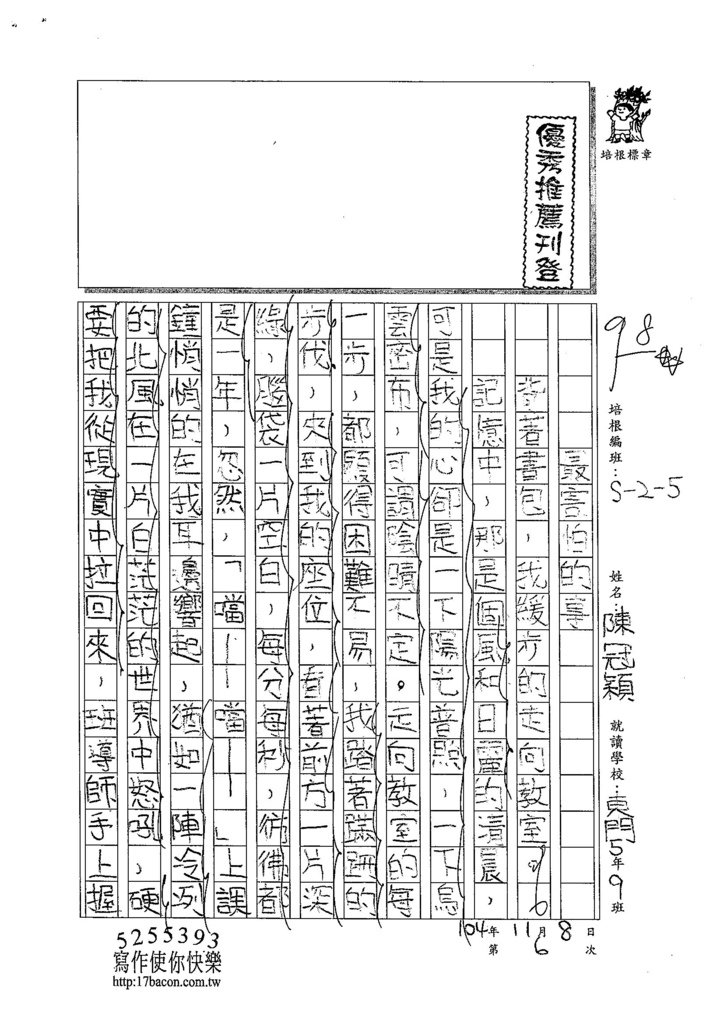 優秀推薦刊登
培根標章
98
培根編班：S-2-5
姓名：陳冠穎
就讀學校：東門5年9班
最害怕的事
背著書包，我緩步的走向教室。
記憶中，那是個風和日麗的清晨，
可是我的心卻是一下陽光普照，一下烏
雲密布，可謂陰晴不定。走向教室的每
一步，都顯得困難不易，我踏著蹣跚的
步伐，來到我的座位，看著前方一片深
綠，腦袋一片空白，每分每秒，彷彿都
是一年，忽然，「噹——噹——」上課
鐘悄悄的在我耳邊響起，猶如一陣冷冽
的北風在一片白茫茫的世界中怒吼，硬
要把我從現實中拉回來，班導師手上握
104年11月8日
第6次
5255393
寫作使你快樂
http://17bacon.com.tw